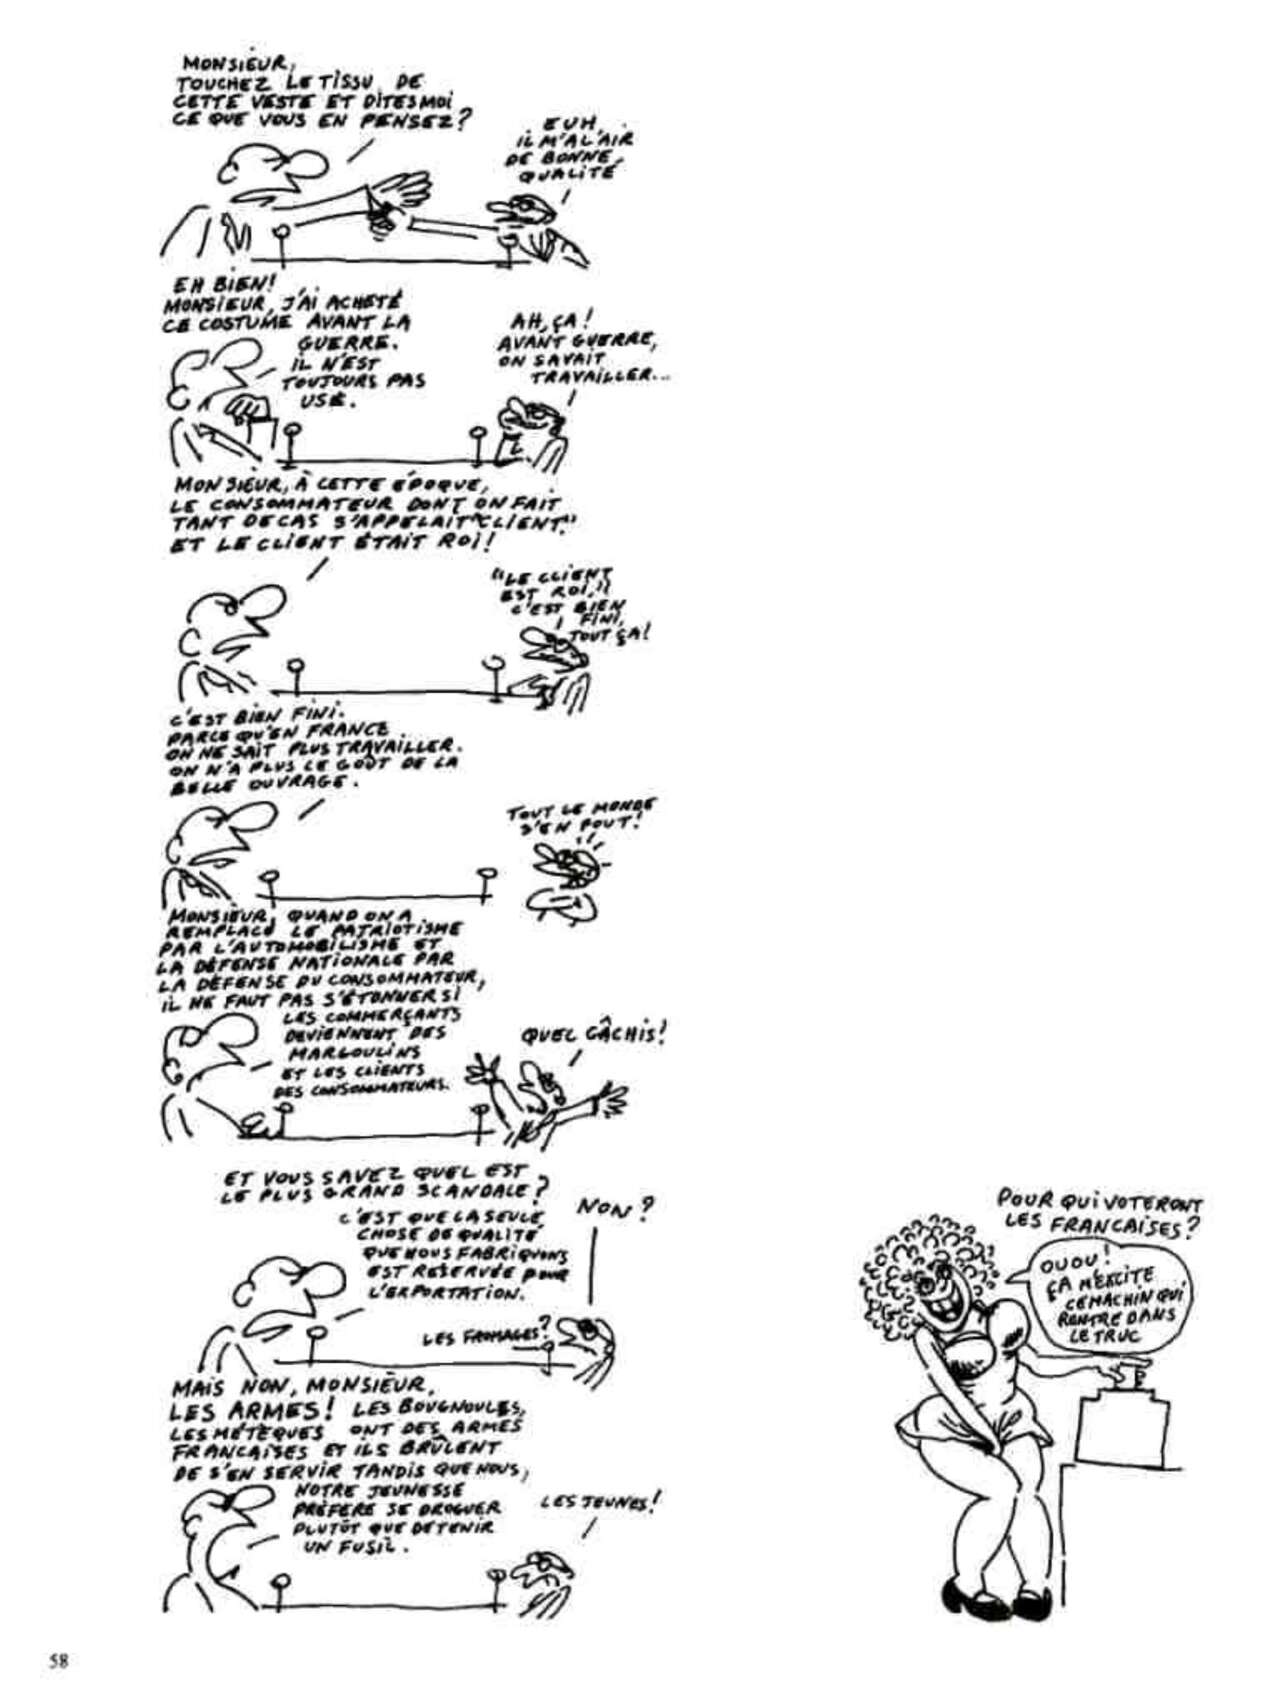 MONSIEUR,
TOUCHEZ LE TISSU DE
CETTE VESTE ET DITES MOI
CE QUE VOUS EN PENSEZ?
EUH,
IL M'A L'AIR
DE BONNE
QUALITÉ
EH BIEN!
MONSIEUR, J'AI ACHETÉ
CE COSTUME AVANT LA
GUERRE.
IL N'EST
TOUJOURS PAS
USÉ.
AH, ÇA!
AVANT GUERRE,
ON SAVAIT
TRAVAILLER...
MONSIEUR, À CETTE ÉPOQUE,
LE CONSOMMATEUR DONT ON FAIT
TANT DE CAS S'APPELAIT "CLIENT"
ET LE CLIENT ÉTAIT ROI!
"LE CLIENT
EST ROI,"
C'EST BIEN
FINI,
TOUT ÇA!
C'EST BIEN FINI.
PARCE QU'EN FRANCE
ON NE SAIT PLUS TRAVAILLER.
ON N'A PLUS LE GOÛT DE LA
BELLE OUVRAGE.
TOUT LE MONDE
S'EN FOUT!
MONSIEUR, QUAND ON A
REMPLACÉ LE PATRIOTISME
PAR L'AUTOMOBILISME ET
LA DÉFENSE NATIONALE PAR
LA DÉFENSE DU CONSOMMATEUR,
IL NE FAUT PAS S'ÉTONNER SI
LES COMMERÇANTS
DEVIENNENT DES
MARGOULINS
ET LES CLIENTS
DES CONSOMMATEURS.
QUEL GÂCHIS!
ET VOUS SAVEZ QUEL EST
LE PLUS GRAND SCANDALE?
NON?
C'EST QUE LA SEULE
CHOSE DE QUALITÉ
QUE NOUS FABRIQUONS
EST RESERVÉE POUR
L'EXPORTATION.
LES FROMAGES?
MAIS NON, MONSIEUR,
LES ARMES! LES BOUGNOULES,
LES MÉTÈQUES ONT DES ARMES
FRANCAISES ET ILS BRÛLENT
DE S'EN SERVIR TANDIS QUE NOUS,
NOTRE JEUNESSE
PRÉFERE SE DROGUER
PLUTÔT QUE DE TENIR
UN FUSIL.
LES JEUNES!
POUR QUI VOTERONT
LES FRANCAISES?
OUOU!
ÇA M'EXCITE
CE MACHIN QUI
RENTRE DANS
LE TRUC
58